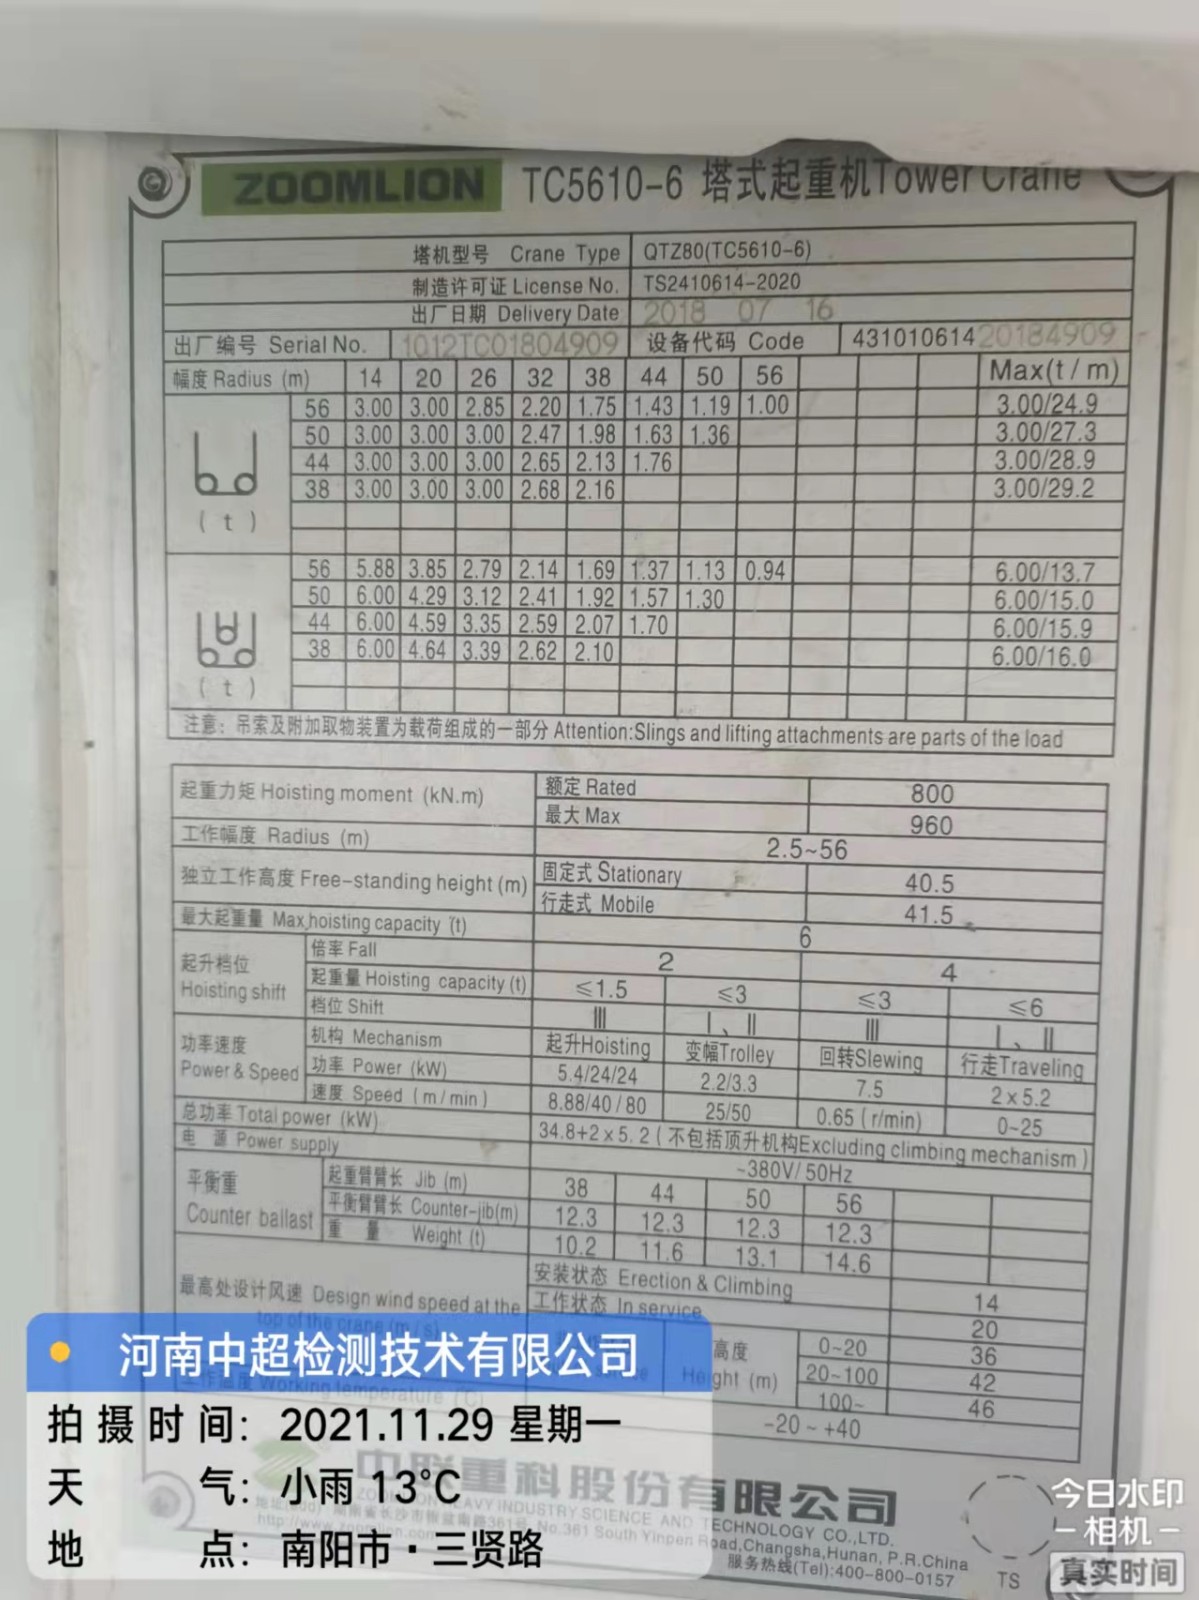 ZOOMLION TC5610-6 塔式起重机Tower Crane
塔机型号 Crane Type QTZ80(TC5610-6)
制造许可证 License No. TS2410614-2020
出厂日期 Delivery Date 2018 07 16
出厂编号 Serial No. 1012TC01804909 设备代码 Code 43101061420184909
幅度 Radius (m) 14 20 26 32 38 44 50 56 Max(t/m)
56 3.00 3.00 2.85 2.20 1.75 1.43 1.19 1.00 3.00/24.9
50 3.00 3.00 3.00 2.47 1.98 1.63 1.36 3.00/27.3
44 3.00 3.00 3.00 2.65 2.13 1.76 3.00/28.9
38 3.00 3.00 3.00 2.68 2.16 3.00/29.2
(t)
56 5.88 3.85 2.79 2.14 1.69 1.37 1.13 0.94 6.00/13.7
50 6.00 4.29 3.12 2.41 1.92 1.57 1.30 6.00/15.0
44 6.00 4.59 3.35 2.59 2.07 1.70 6.00/15.9
38 6.00 4.64 3.39 2.62 2.10 6.00/16.0
(t)
注意：吊索及附加取物装置为载荷组成的一部分 Attention:Slings and lifting attachments are parts of the load
起重力矩 Hoisting moment (kN.m) 额定 Rated 800
最大 Max 960
工作幅度 Radius (m) 2.5~56
独立工作高度 Free-standing height (m) 固定式 Stationary 40.5
行走式 Mobile 41.5
最大起重量 Max.hoisting capacity (t) 6
起升档位 Hoisting shift 倍率 Fall 2 4
起重量 Hoisting capacity (t) ≤1.5 ≤3 ≤3 ≤6
档位 Shift Ⅲ Ⅰ、Ⅱ Ⅲ Ⅰ、Ⅱ
功率速度 Power & Speed 机构 Mechanism 起升Hoisting 变幅Trolley 回转Slewing 行走Traveling
功率 Power (kW) 5.4/24/24 2.2/3.3 7.5 2×5.2
速度 Speed (m/min) 8.88/40/80 25/50 0.65 (r/min) 0~25
总功率 Total power (kW) 34.8+2×5.2(不包括顶升机构Excluding climbing mechanism)
电 源 Power supply ~380V/50Hz
平衡重 Counter ballast 起重臂臂长 Jib (m) 38 44 50 56
平衡臂臂长 Counter-jib(m) 12.3 12.3 12.3 12.3
重 量 Weight (t) 10.2 11.6 13.1 14.6
最高处设计风速 Design wind speed at the top of the crane (m/s) 安装状态 Erection & Climbing 14
工作状态 In service 20
高度 Height (m) 0~20 36
20~100 42
100~ 46
工作温度 Working temperature (℃) -20~+40
中联重科股份有限公司
ZOOMLION HEAVY INDUSTRY SCIENCE AND TECHNOLOGY CO.,LTD.
No.361 South Yinpen Road,Changsha,Hunan, P.R.China
http://www.zoomlion.com
服务热线(Tel):400-800-0157
TS
河南中超检测技术有限公司
拍摄时间：2021.11.29 星期一
天气：小雨 13℃
地点：南阳市·三贤路
今日水印
-相机-
真实时间